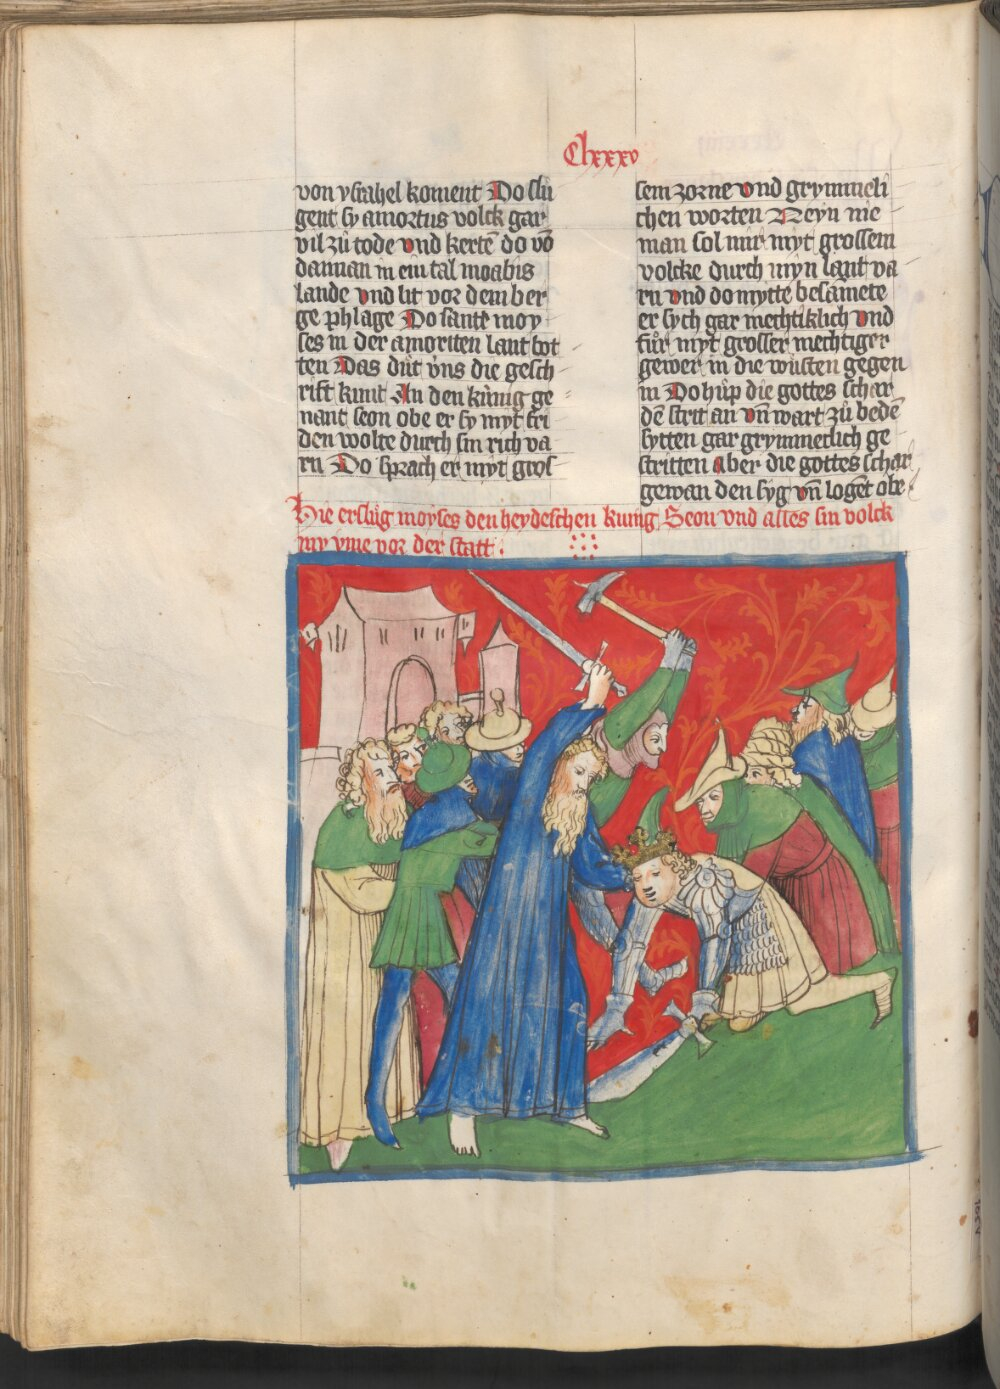 Clxxxv
von ysrahel koment Do slů
gent sy amortus volck gar
vil zů tode vnd kertē do vō
dannan in ein tal moabis
lande vnd lit vor dem ber
ge phlage Do sante moy
ses in der amoriten lant bot
ten Das dùt v̇ns die gesch
rift kunt An den kùnig ge
nant seon obe er sy myt fri
den wolte durch sin rich va
rn Do sprach er myt gros
sem zorne vnd grymmeli
chen worten Neyn nie
man sol mir myt grossem
volcke durch myn lant va
rn vnd do mytte besamete
er sych gar mechtiklich vnd
fůr myt grosser mechtiger
gewer in die wůsten gegen
in Do hůp die gottes schar
dē strit an vn̄ wart zů bedē
sytten gar grymmeclich ge
stritten aber die gottes schar
gewan den syg vn̄ loget obe
Hie erslůg moyses den heydeschen kunig Seon vnd alles sin volck
vor der statt :